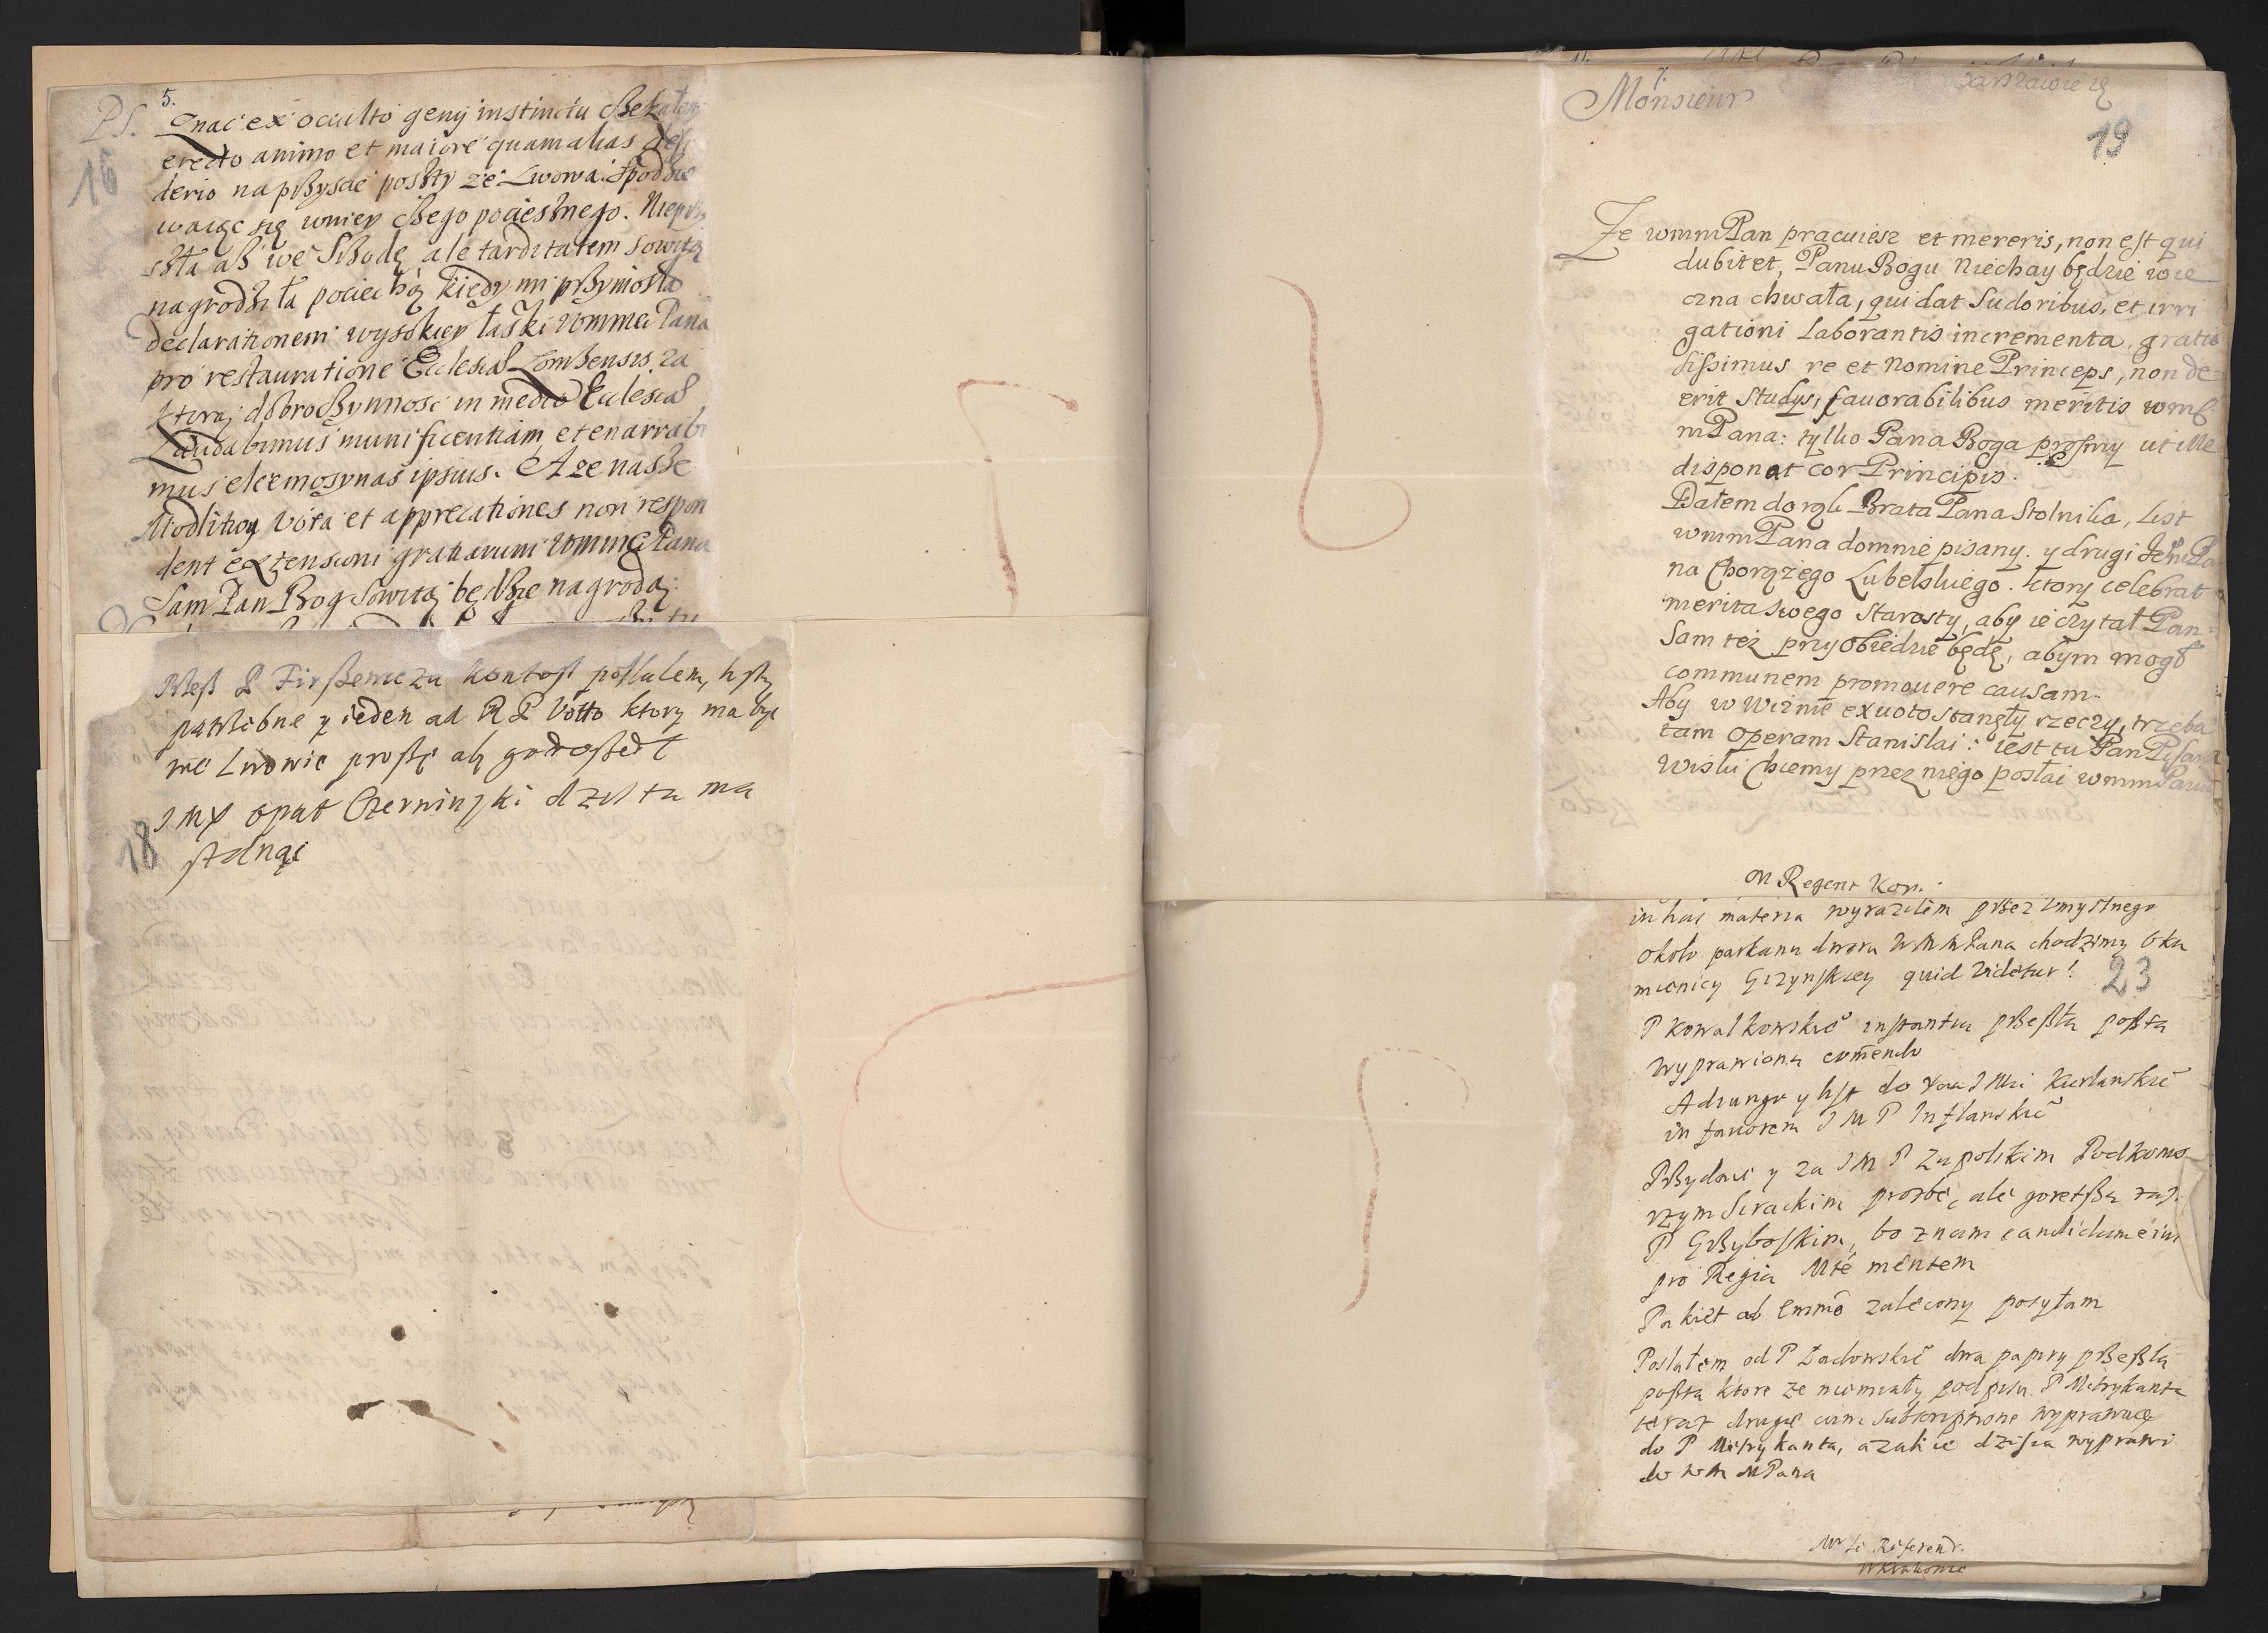 5.
PS. Znać ex occulto genij instinctu czekałem
16
erecto animo et maiore quam alias desi
derio na przyscie poszty ze Lwowa. Spodzie
waiąc się wniey czego pociesznego. Nieprzy
szła asz we Szrodę ale tarditatem sowitą
nagrodziła pociechą kiedy mi przyniosła
declarationem wysokiey łaski wmmci Pana
pro restauratione Ecclesiae Lomzensis. za
ktorą dobroczynnosc in medio Ecclesiae
Laudabimus munificentiam et enarrabi
mus eleemosynas ipsius. A ze nasze
Modlitwy vota et apprecationes non respon
dent extensioni gratiarum wmmci Pana
Sam Pan Bog Sowitą będzie nagrodą:
P Firszewicza kontost posłalem, listy
potrzebne y ieden ad R P Votto ktory ma byc
we Lwowie proszę aby go doszedł
J M X opat Czerwinski dzis tu ma
18
stanąć
7.
Monsieur
19
Ze wmmPan pracuiesz et mereris, non est qui
dubitet, Panu Bogu niechay będzie wie
czna chwała, qui dat Sudoribus, et irri
gationi Laborantis incrementa, gratio
sissimus re et nomine Princeps, non de=
erit studys, fauorabilibus meritis wmſ
mPana: tylko Pana Boga prosmy ut ille
disponat cor Principis.
Dałem do rąk Brata Pana Stolnika, List
wmmPana domnie pisany. y drugi JemPa
na Chorążego Lubelskiego. ktory celebrat
merita swego Starosty, aby ie czytał Pan.
Sam tez przy obiedzie będę, abym mogł
communem promouere causam.
Aby w Wiznie ex uoto stanęły rzeczy, trzeba
tam operam Stanislai: iest tu Pan Pisarz
Wiski Chcemy przez niego posłać wmmPanu
M Regent Kor.
in hac materia wyraziłem przez Umyslnego
około parkanu dwora WMMPana chodzimy O ka
mienicy Gizynskiey quid videtur!
23
P Kowalkowskie° instantia przeszłą posztą
wyprawiona comendo
A drungo y list do Xcia J Mci Kurlanskie°
in fauorem J M P Inflanskie°
Przydaie y za J M P Zapolskim Podkomo
rzym Sirackim prozbe, ale goretszą za J.
P Grzyboskim, bo znam candidum eius
pro Regia Mte mentem
Pakiet ab Emmo zalecony posyłam
Posłałem od P Zadowskie° dwa papiry przeszłą
posztą ktore ze niemiały podpisu P Metrykanta
teraz drugie cum Subscriptione wyprawuię
do P Metrykanta, azali ie dzisia wyprawi
do WM MPana
Mr le Referend.
w Krakowie